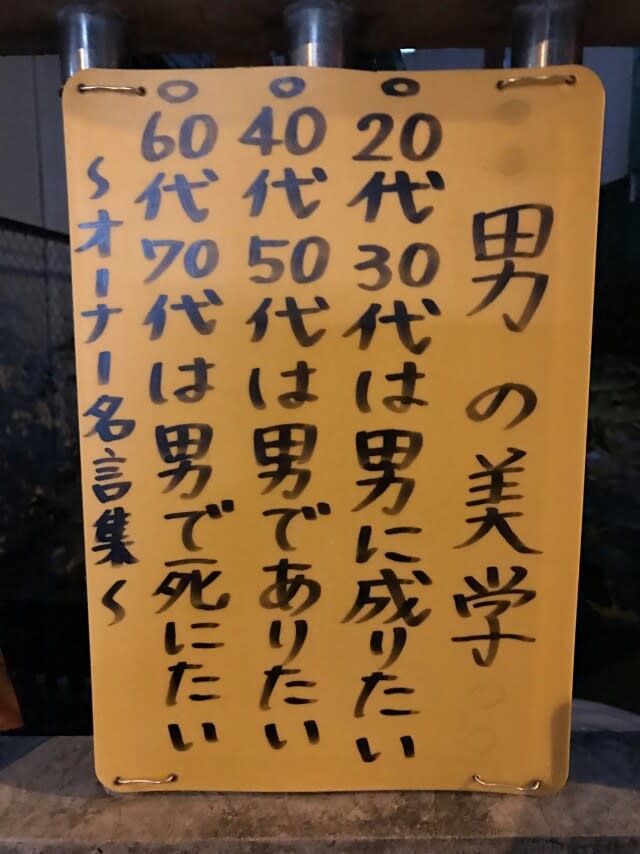 男の美学
○20代30代は男に成りたい
○40代50代は男でありたい
○60代70代は男で死にたい
〜オーナー名言集〜